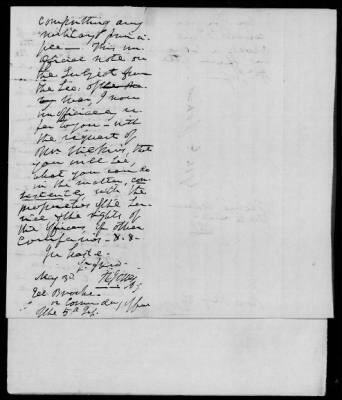 committing any
military princi
ple — This un
official note on
the Subject from
the Sec. of
War, I now
unofficially re
fer to you — with
the request of
Mrs. that
you will see,
what you can do
in the matter, con
sistently with the
proprieties of the Ser
vice & the rights of
the officers of other
companies — &. &.
In haste.
May 30.
Col Brooke
or Commandg officer
the 5th Inf.